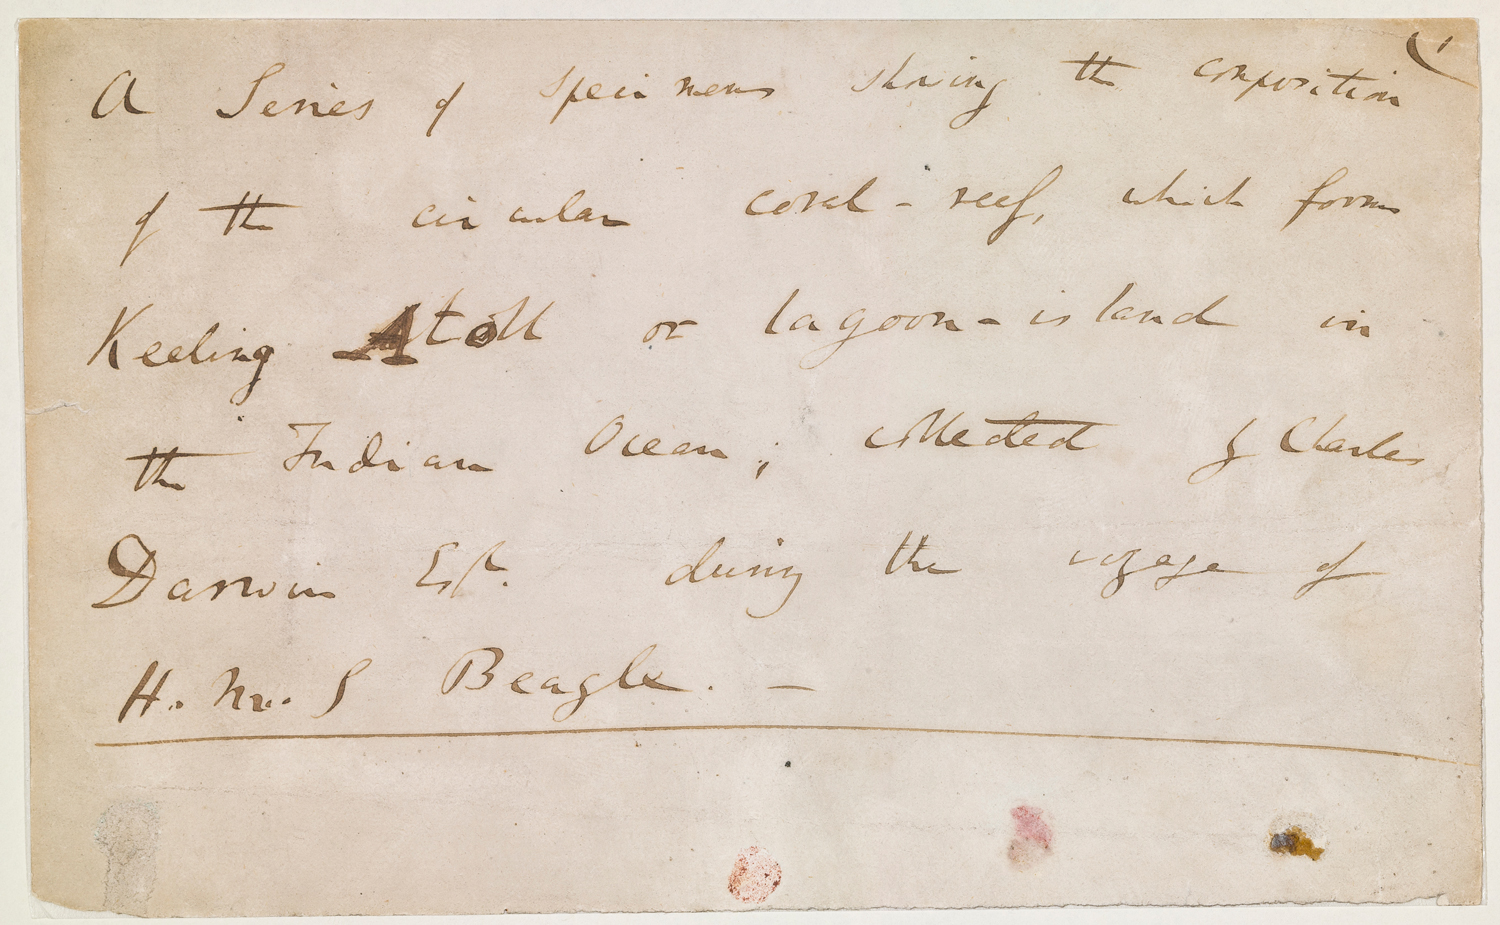 A Series of specimens showing the composition
of the circular coral-reef, which forms
Keeling Atoll or lagoon-island in
the Indian Ocean; collected by Charles
Darwin Esqr. during the voyage of
H. M. S Beagle. —